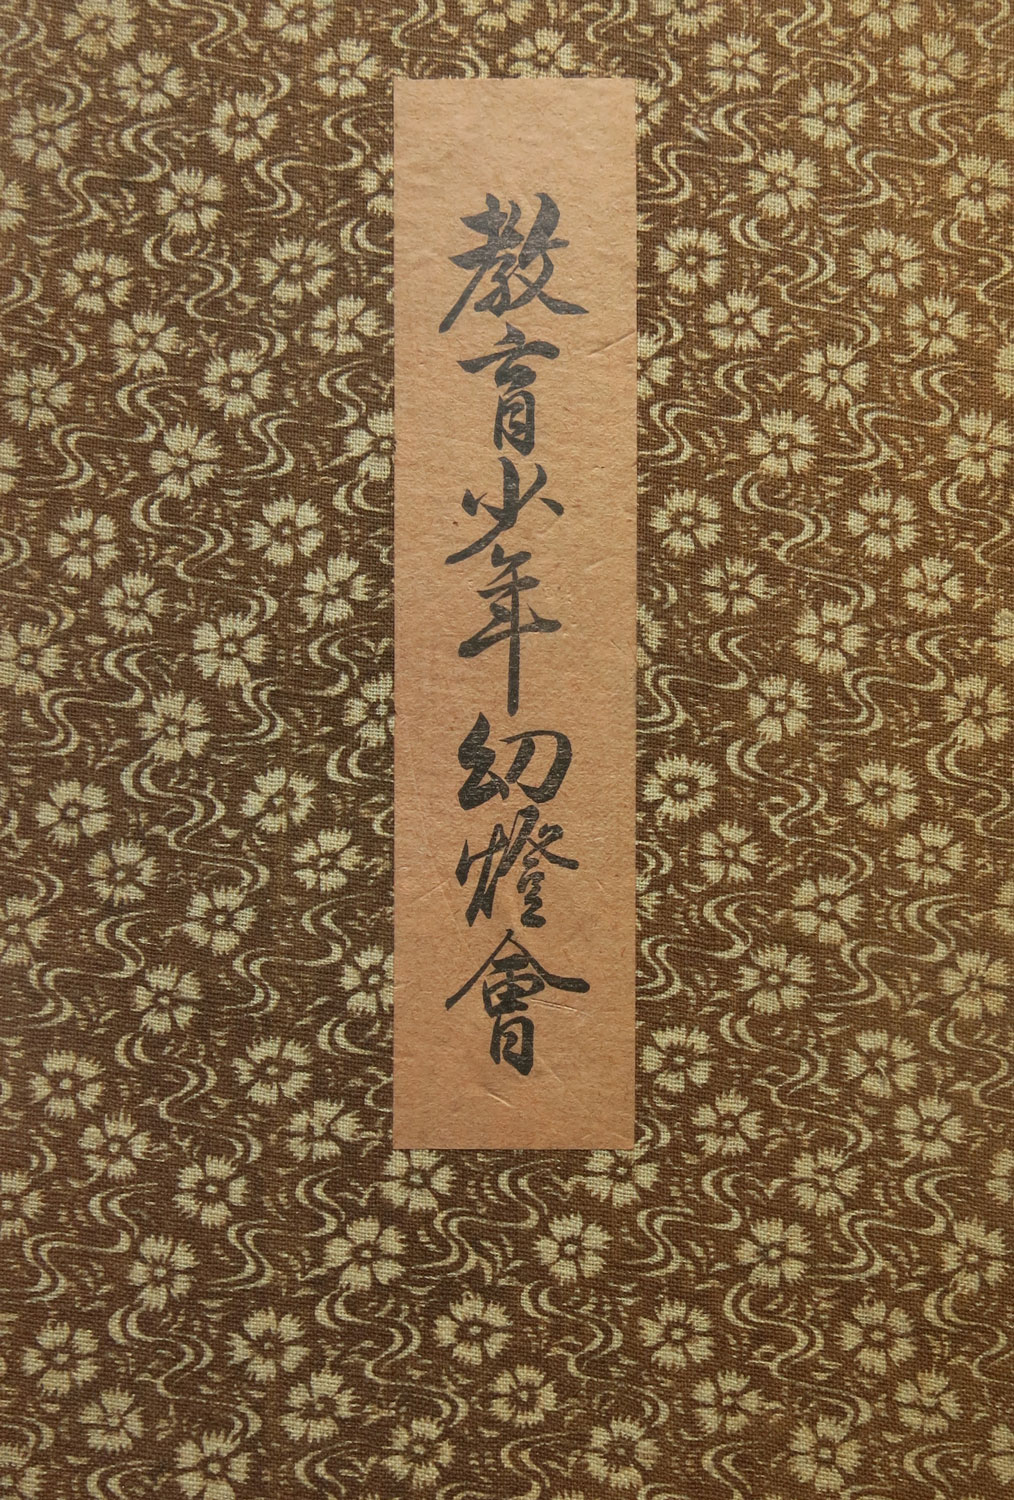 教育少年幻燈會